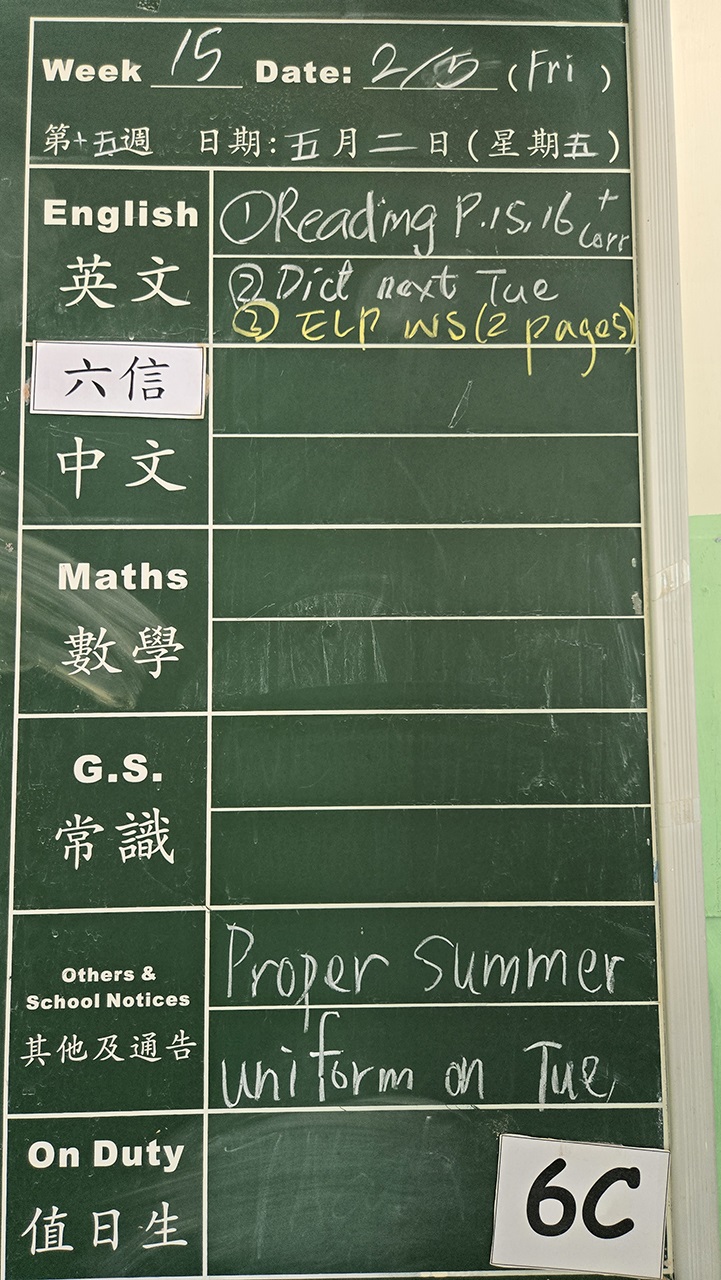 Week 15 Date: 2/5 (Fri)
第十五週 日期:五月二日(星期五)
English ①Reading P.15,16 + Corr
英文 ②Dict next Tue
③ ELP WS(2 pages)
六信
中文
Maths
數學
G.S.
常識
Others &
School Notices
其他及通告
Proper Summer
uniform on Tue
On Duty
值日生
6C